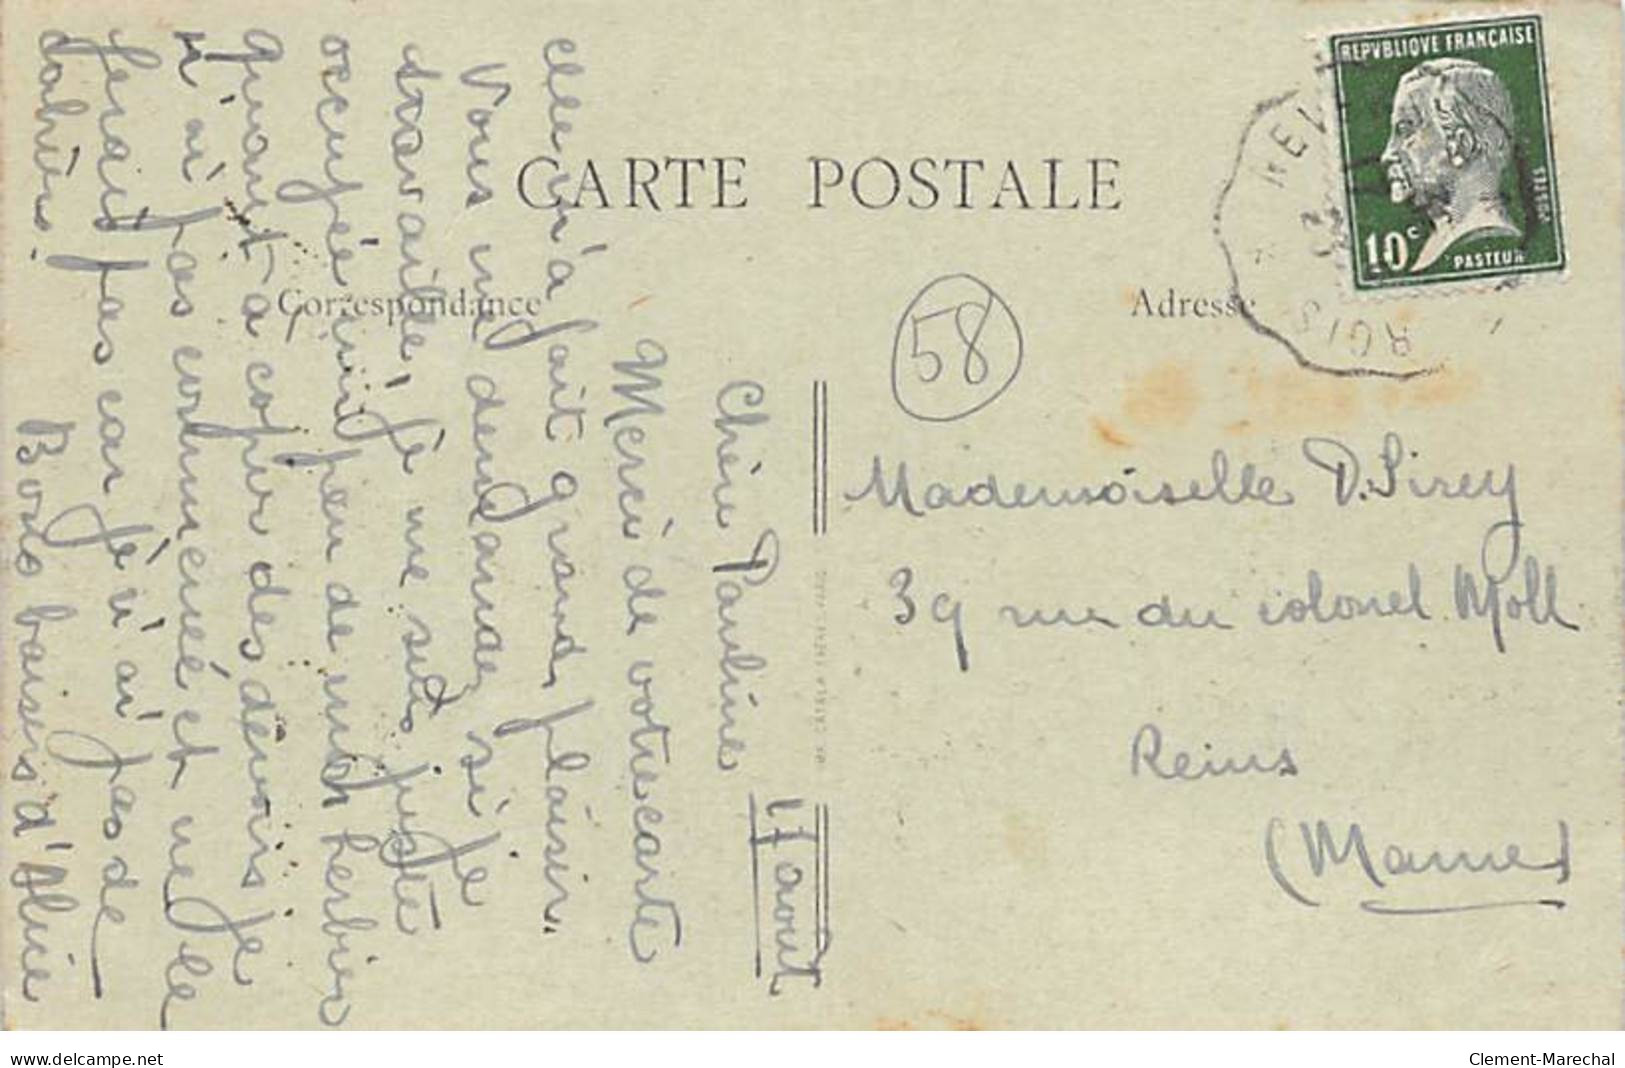 CARTE POSTALE
Correspondance
Adresse
REPVBLIQVE FRANÇAISE
POSTES
10c
PASTEUR
58
17 aout
Chère Pauline
Merci de votre carte
elle m'a fait grand plaisir.
Vous me demandez si je
travaille je me suis juste
occupée un peu de mon herbier
quant à copier des devoirs je
n'ai pas commencé et ne le
ferais pas car je n'ai pas de
cahiers.
Bons baisers d'Alice
Mademoiselle D. Sirey
39 rue du colonel Moll
Reims
(Marne)
delcampe.net
Clement-Marechal